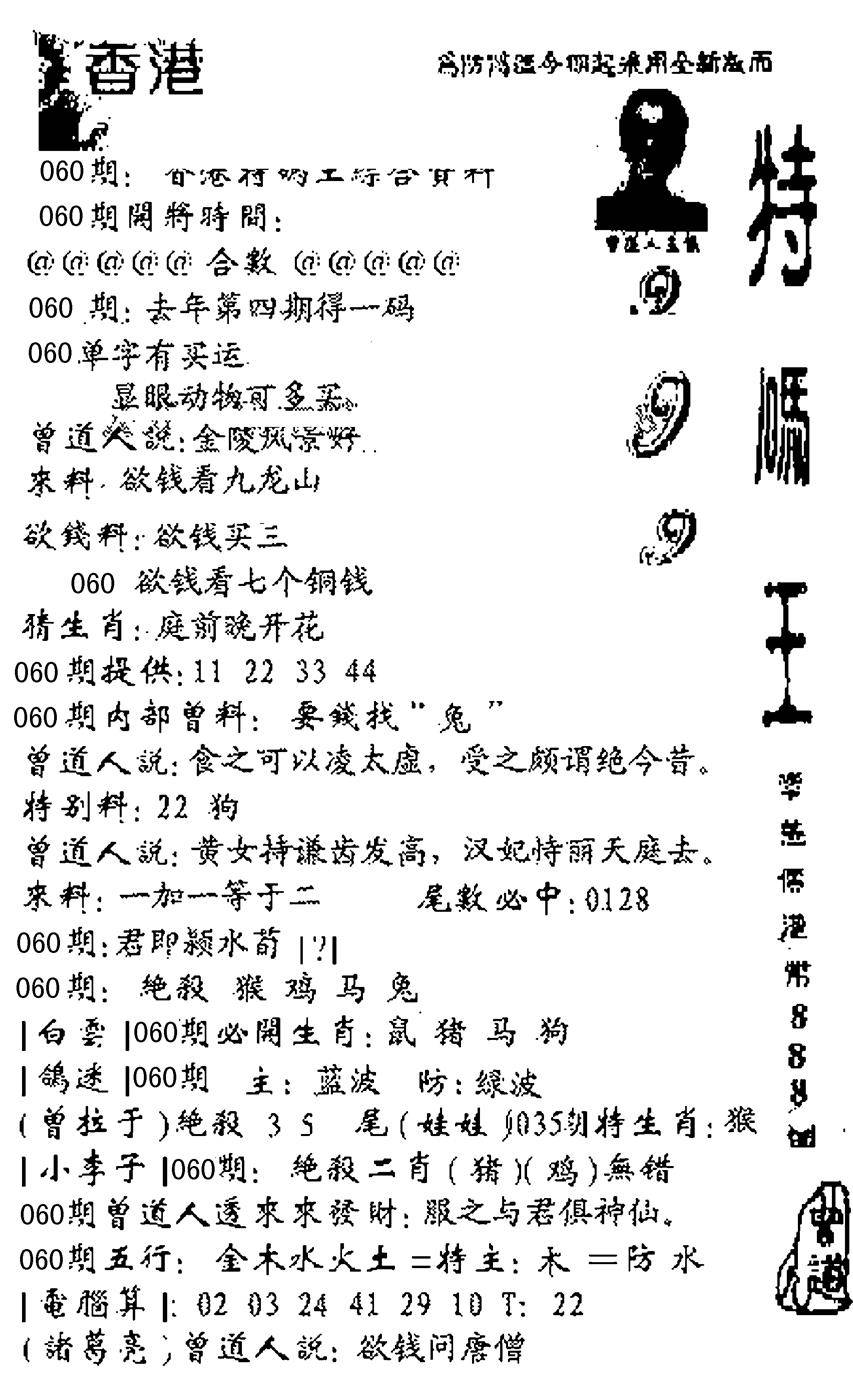 香港
為防偽造今期起采用全新版面
060期: 香港特碼王綜合資料
060期開將時間:
曾道人主儀
@@@@@ 合數 @@@@@
060 期: 去年第四期得一码
060单字有买运
显眼动物可多买。
曾道人説:金陵风景好
來料: 欲钱看九龙山
欲錢料:欲钱买三
060 欲钱看七个铜钱
猜生肖: 庭前晚开花
060期提供:11 22 33 44
060期内部曾料: 要錢找“兔”
曾道人説:食之可以凌太虚,受之颇谓绝今昔。
特别料:22 狗
曾道人説:黄女持谦齿发高,汉妃恃丽天庭去。
來料: 一加一等于二 尾數必中:0128
060期:君即颍水荀 |?|
060期: 絶殺 猴 鸡 马 兔
|白雲|060期必開生肖:鼠 猪 马 狗
|鴿迷|060期 主: 蓝波 防:緑波
(曾拉于)絶殺 3 5 尾(娃娃)035期特生肖:猴
|小李子|060期: 絶殺二肖(猪)(鸡)無错
060期曾道人透來來發財:服之与君俱神仙。
060期五行: 金木水火土=特主:木 =防 水
|電腦算|: 02 03 24 41 29 10 T: 22
(諸葛亮)曾道人説: 欲钱问唐僧
特碼王
港幣888圓